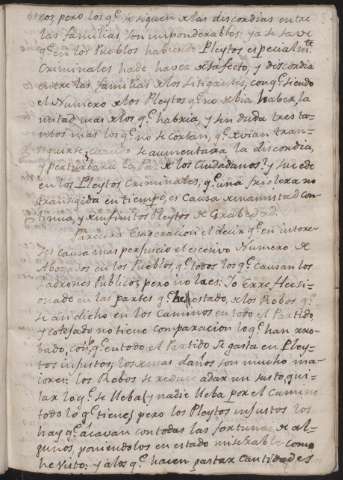 pero los q.e se siguen de las discordias entre
las familias son imponderables; ya se save
q.e en los Pueblos habiendo Pleytos especialm.te
Criminales hade haver desafecto, y discordia
entre las familias de los litigantes, con q.e siendo
el Numero de los Pleytos q.e no debia haber, la
mitad mas de los q.e habria, y sin duda tres tan-
tos mas los q.e no se cortan, q.e devian tran-
sigirse, se aumentara la discordia,
y perturbara la Paz de los Ciudadanos; y sucede
en los Pleytos Criminales, q.e una friolera no
transigida en tiempo, es Causa de enamistad con-
tinua, y de infinitos Pleytos de Gravedad.
Parecera Exageracion el decir q.e en intere-
ses causa mas perjuicio el excesivo Numero de
Abogados en los Pueblos q.e todos los q.e causan los
Ladrones Publicos, pero no lo es: Yo he refleccio-
nado en las partes q.e he estado, de los Robos q.e
se an dicho en los Caminos en todo el Partido
y cotejado no tiene comparacion lo q.e han rro-
bado, con q.e en todo el Partido se gasta en Pley-
tos injustos, los demas daños son mucho ma-
iores: los Robos se reducen a dar un susto, qui-
tar lo q.e se lleba, y nadie lleba por el Camino
todo lo q.e tiene, pero los Pleytos injustos los
hay q.e acavan con todas las fortunas de al-
gunos, poniendolos en estado miserable como
he visto; y a los q.e hacen gastar Cantidades